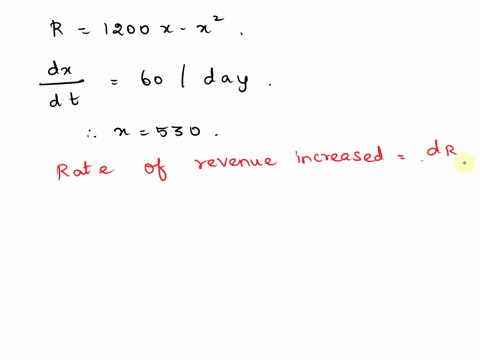 R = 1200 x - x² .
dx/dt = 60 / day .
∴ x = 530 .
Rate of revenue increased = dR